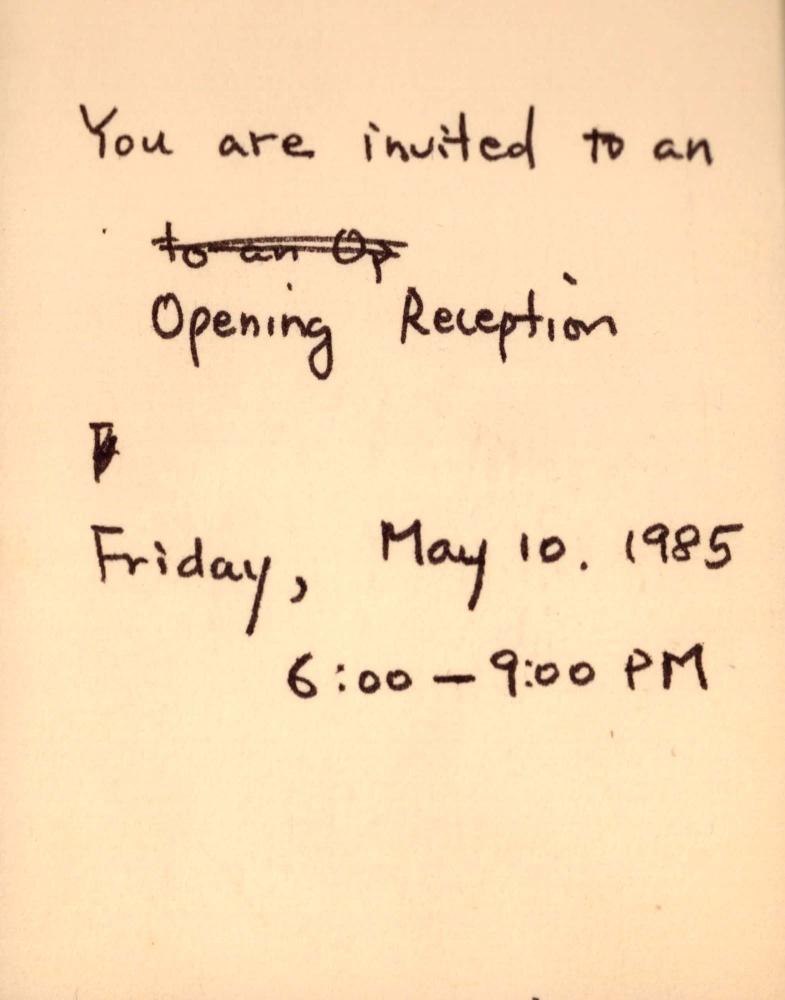 You are invited to an
to an Op
Opening Reception
Friday, May 10. 1985
6:00 — 9:00 PM